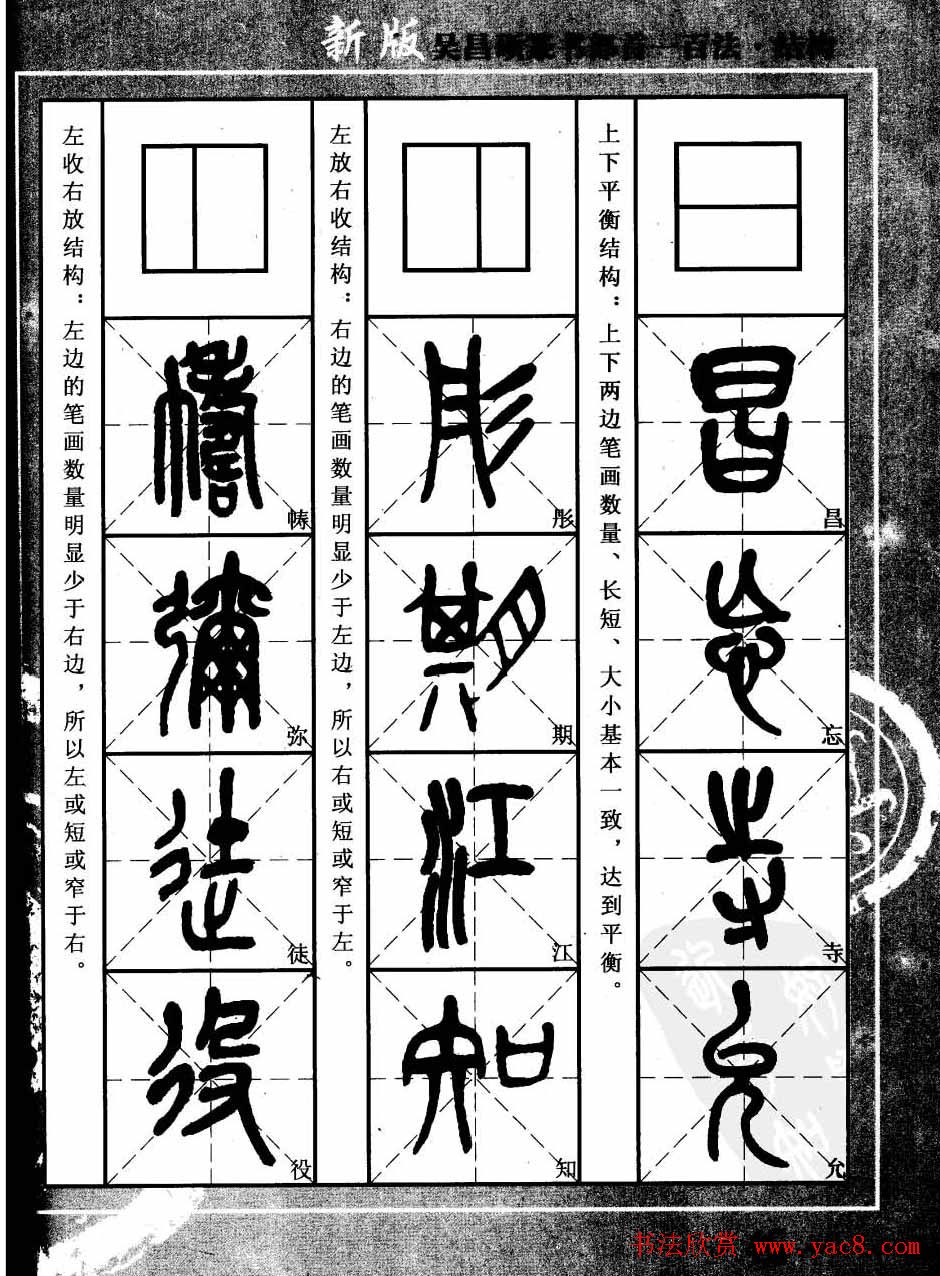 新版 吴昌硕篆书部首一百法·结构
上下平衡结构：上下两边笔画数量、长短、大小基本一致，达到平衡。
昌
忘
寺
允
左放右收结构：右边的笔画数量明显少于左边，所以右或短或窄于左。
彤
期
江
知
左收右放结构：左边的笔画数量明显少于右边，所以左或短或窄于右。
帱
弥
徒
役
书法欣赏 www.yac8.com